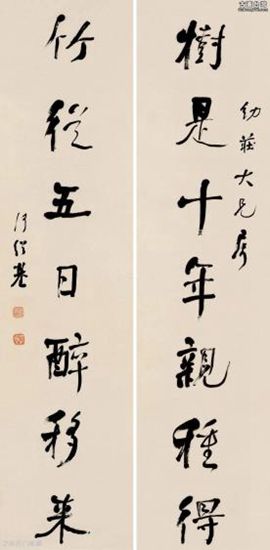 樹是十年親種得
幼莊大兄屬
竹從五日醉移來
何紹基